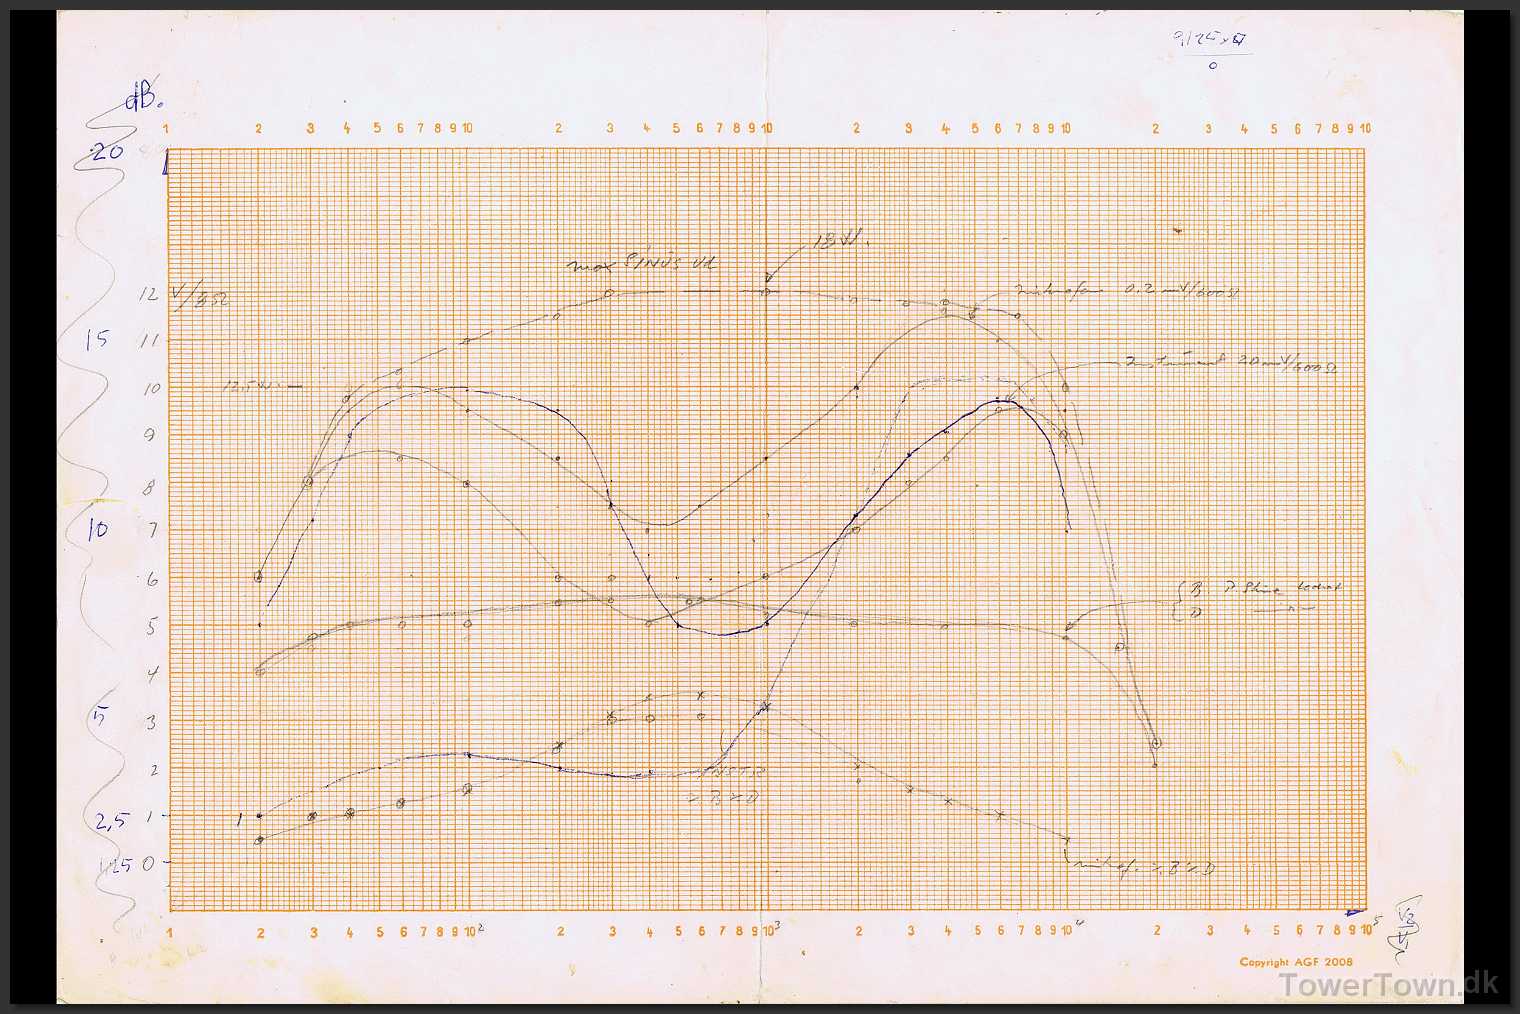 dB.
1 2 3 4 5 6 7 8 9 10 2 3 4 5 6 7 8 9 10 2 3 4 5 6 7 8 9 10 2 3 4 5 6 7 8 9 10
20
18W.
max SINUS Ud
12 V/8Ω
mikrofon 0.2 mV/600Ω
15 11
Instrument 20mV/600Ω
12,5W. 10
9
8
10 7
6
B
D
5
4
5 3
2
INST
÷B ÷D
2,5 1
0
mikrof. ÷B ÷D
1 2 3 4 5 6 7 8 9 10² 2 3 4 5 6 7 8 9 10³ 2 3 4 5 6 7 8 9 10⁴ 2 3 4 5 6 7 8 9 10⁵
Copyright AGF 2008
TowerTown.dk